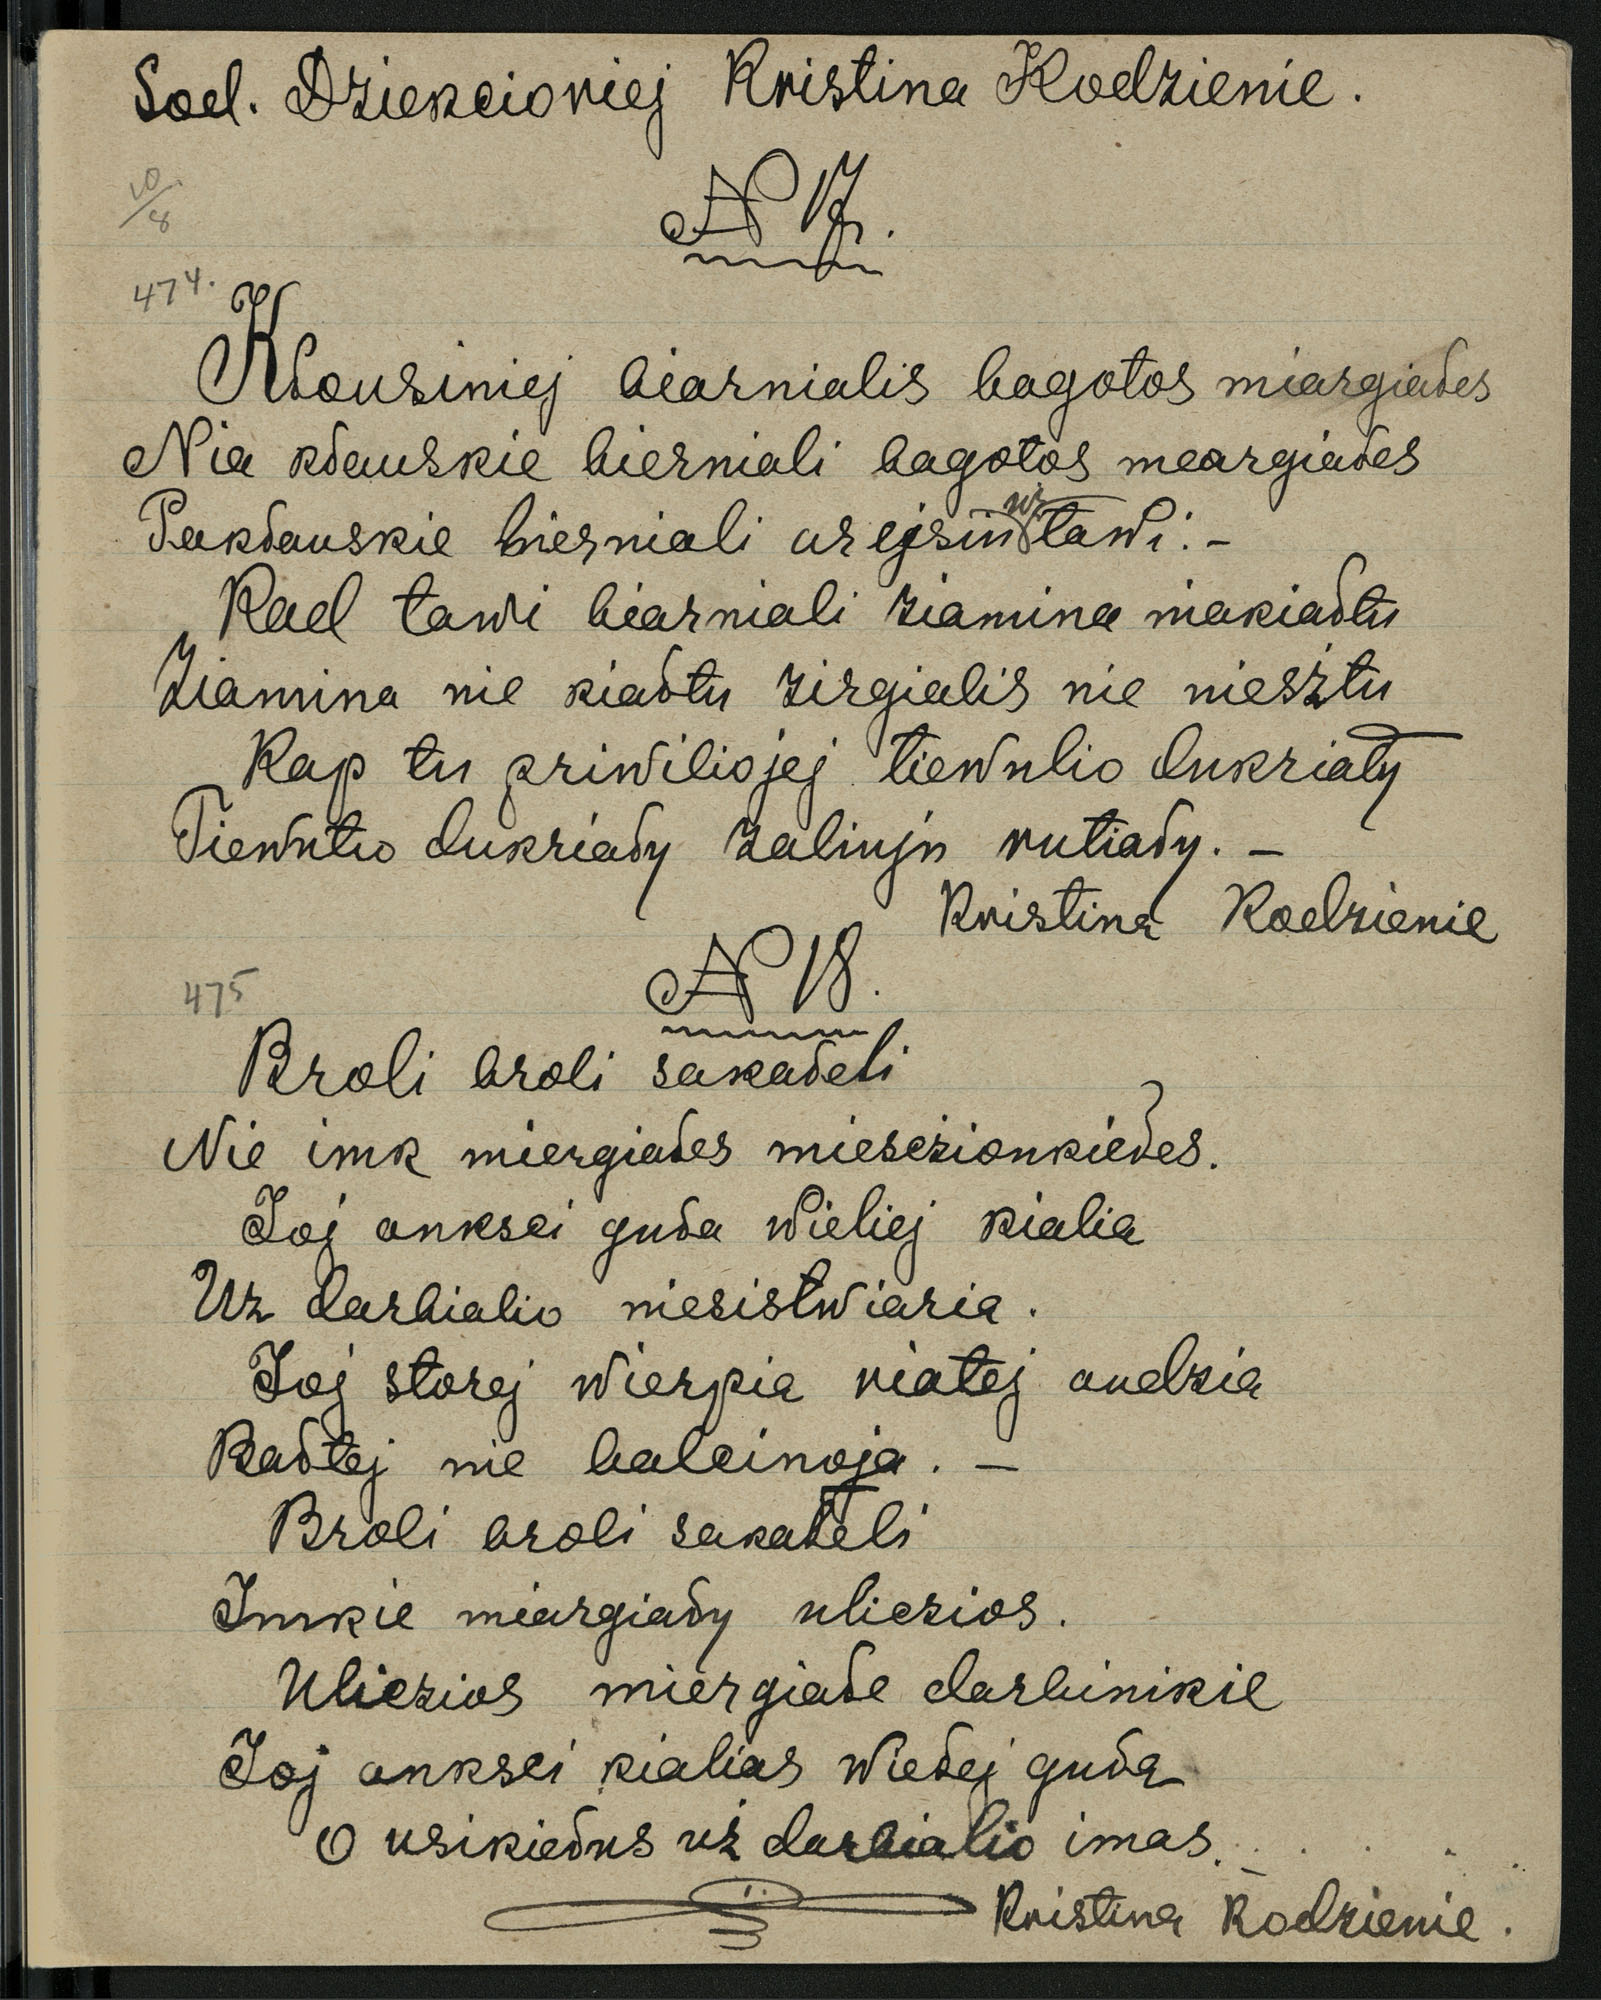 Sod. Dziekcioriej Kristina Kodzienie.
10/8
N 17.
474.
Kłousiniej biarnialis bagotos miargiałes
Nia kłauskie bierniali bagotos meargiałes
Pakłauskie bierniali ar ejsiu uz tawi. –
Kad tawi biarniali ziamina niakiałtu
Ziamina nie kiałtu zirgialis nie niesztu
Kap tu priwiliojej tiewulio dukriały
Tiewulio dukriały zaliuju rutiały. –
Kristina Kodzienie
N 18.
475
Broli broli sakałeli
Nie imk miergiałes miesczionkiełes.
Joj anksci guła wieliej kialia
Uz darbialio niesistwiaria.
Joj storej wierpia riatej audzia
Bałtej nie balcinoja. –
Broli broli sakałeli
Imkie miargiały uliczios.
Uliczios miergiałe darbinikie
Joj anksci kialias wiełej guła
O usikiełus uż darbialio imas. –
Kristina Kodzienie.